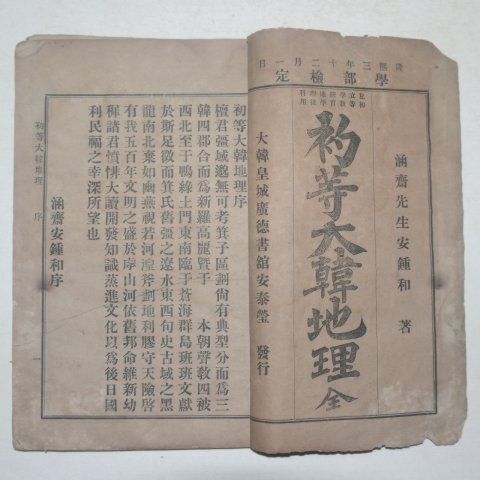 隆熙三年十二月一日
學部檢定
私立學校地理科
初等敎育學徒用
涵齋先生安鍾和 著
初等大韓地理 全
大韓皇城廣德書舘安泰瑩 發行
初等大韓地理序
檀君彊域邈無可考箕子區劃尙有典型分而爲三
韓四郡合而爲新羅高麗曁于 本朝聲敎四被
西北至于鴨綠土門東南臨于蒼海群島班班文獻
於斯足徵而箕氏舊彊之遼水東西句史古域之黑
龍南北棄如幽燕視若河湟斧劃地利膠守天險啓
有我五百年文明之盛於序山河依舊邦命維新幼
穉諸君憤悱大讀開發知識蒸進文化以爲後日國
利民福之幸深所望也
涵齋安鍾和序
初等大韓地理 序